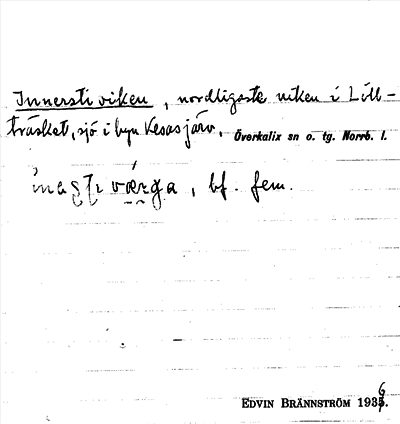 Innersti viken, nordligaste viken i Lill-
träsket, sjö i byn Kesasjärv. Överkalix sn o. tg. Norrb. l.
bf. fem.
EDVIN BRÄNNSTRÖM 1936.